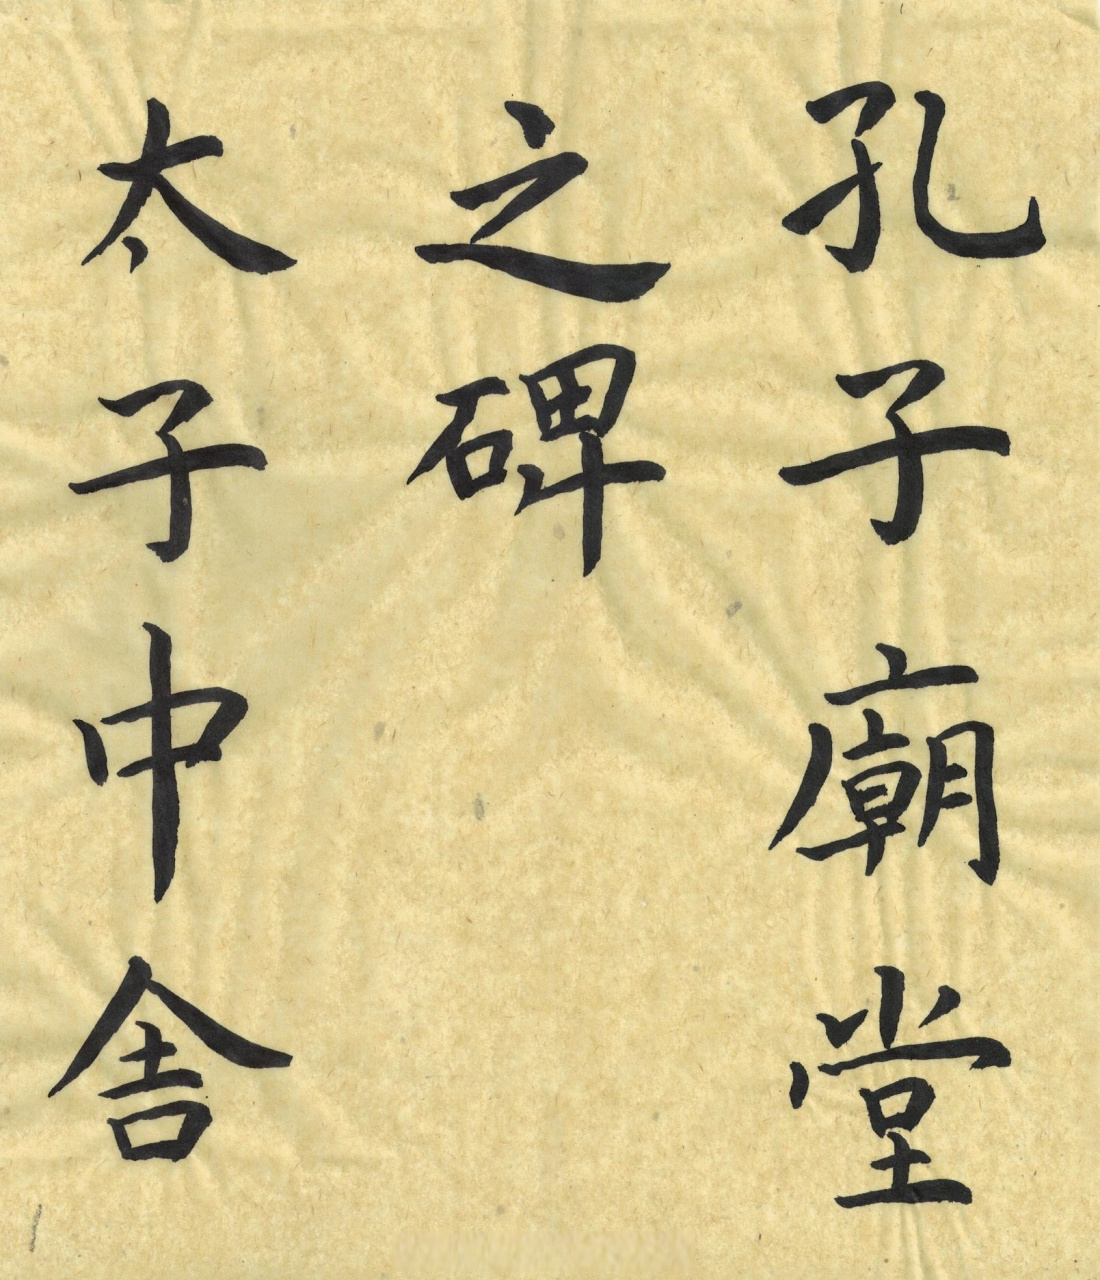 孔子廟堂
之碑
太子中舎